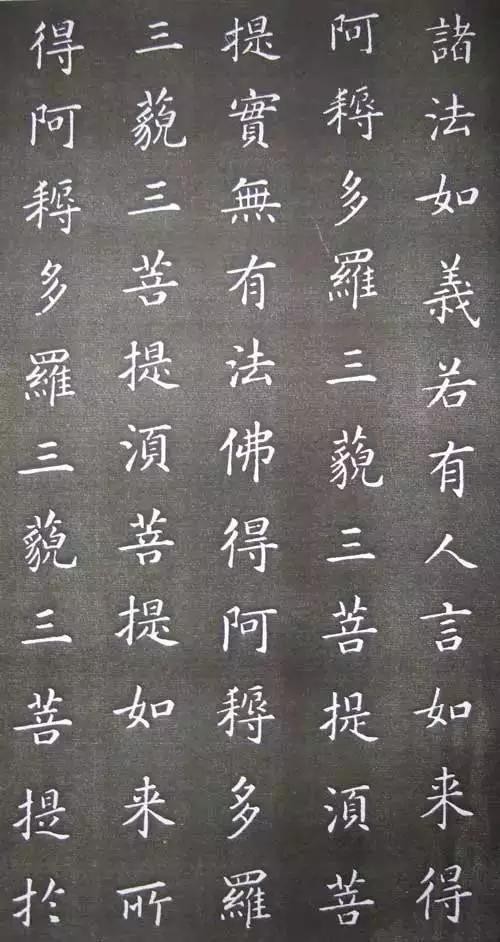 諸法如義若有人言如来得
阿耨多羅三藐三菩提湏菩
提實無有法佛得阿耨多羅
三藐三菩提湏菩提如来所
得阿耨多羅三藐三菩提扵